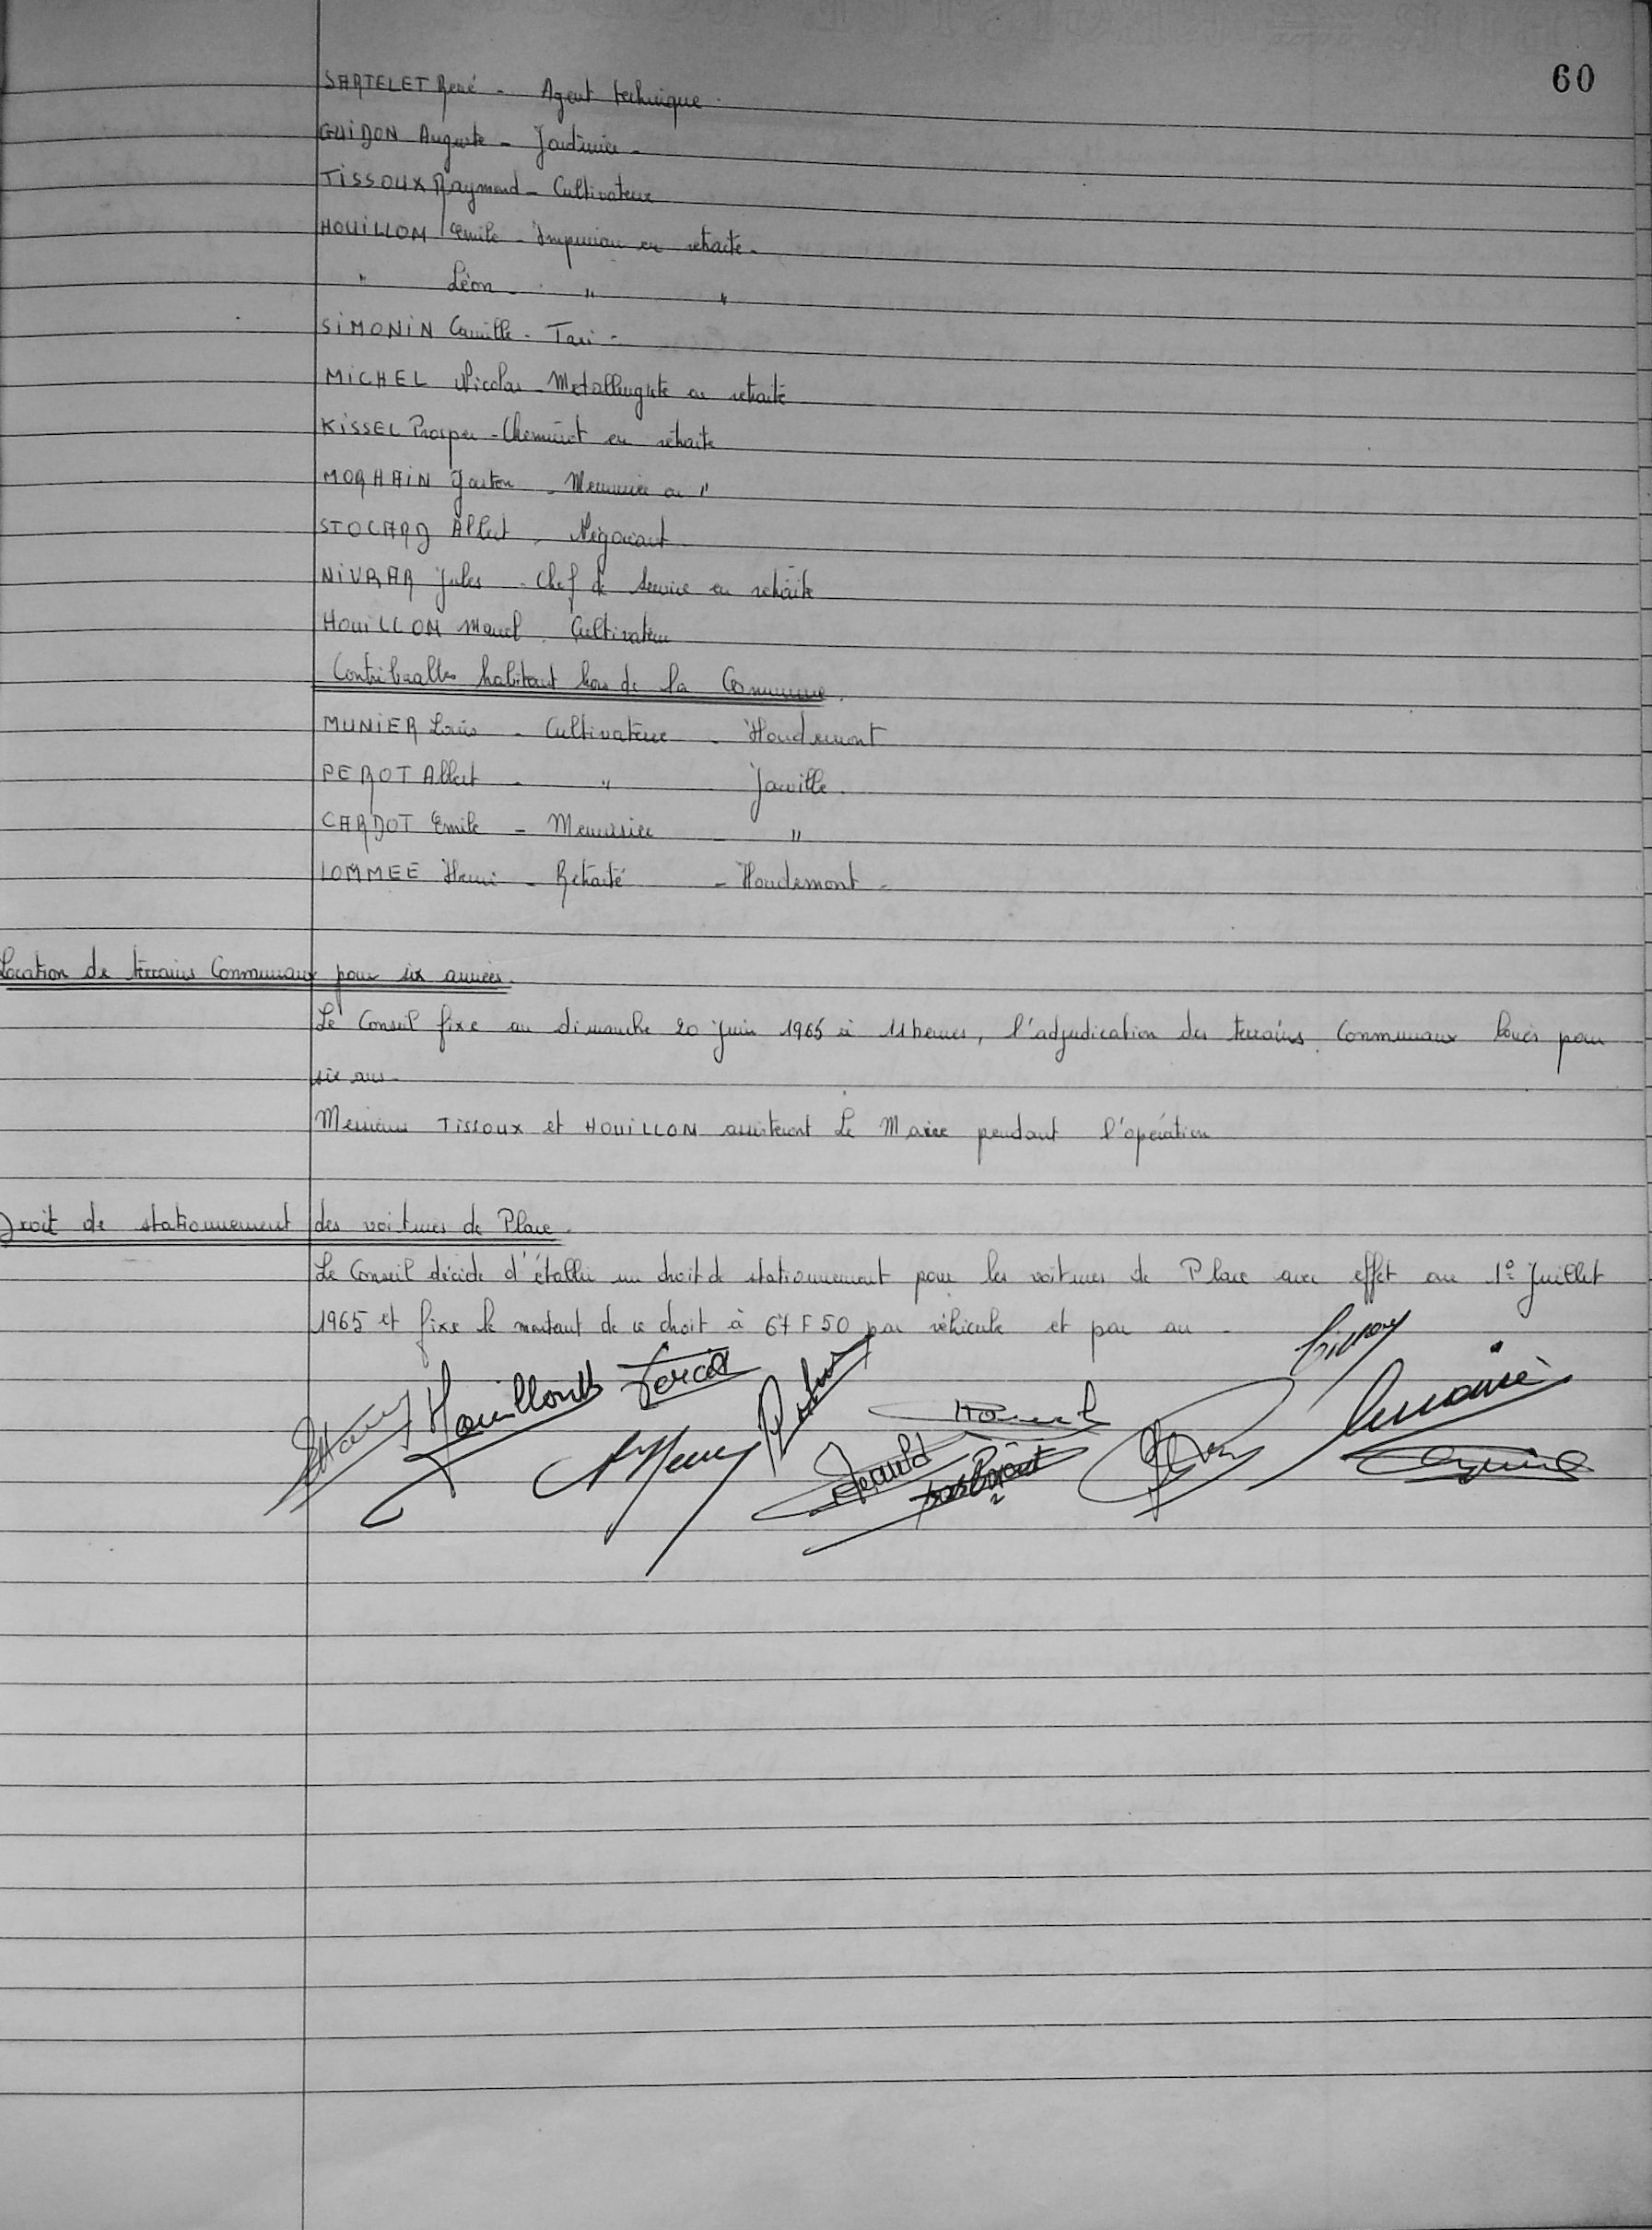 60
SARTELET René - Agent technique.
GUIDON Auguste - Jardinier -
TISSOUX Raymond - Cultivateur
HOUILLON Emile - Imprimeur en retraite -
" Léon - " "
SIMONIN Camille - Taxi -
MICHEL Nicolas - Metallurgiste en retraite
KISSEL Prosper - Cheminot en retraite
MORHAIN Gaston - Menuisier en "
STOCARD Albert - Négociant
NIVRAR Jules - Chef de Service en retraite
HOUILLON Marcel. Cultivateur
Contribuables habitant hors de la Commune.
MUNIER Louis - Cultivateur - Houdemont
PEROT Albert - " Jarville.
CARDOT Emile - Menuisier - "
LOMMEE Henri - Retraité - Houdemont -
Location de terrains Communaux pour six années.
Le Conseil fixe au dimanche 20 Juin 1965 à 11 heures, l'adjudication des terrains Communaux loués pour
six ans -
Messieurs TISSOUX et HOUILLON assisteront Le Maire pendant l'opération
Droit de stationnement des voitures de Place.
Le Conseil décide d'établir un droit de stationnement pour les voitures de Place avec effet au 1° Juillet
1965 et fixe le montant de ce droit à 67 F 50 par véhicule et par an -
Houillon